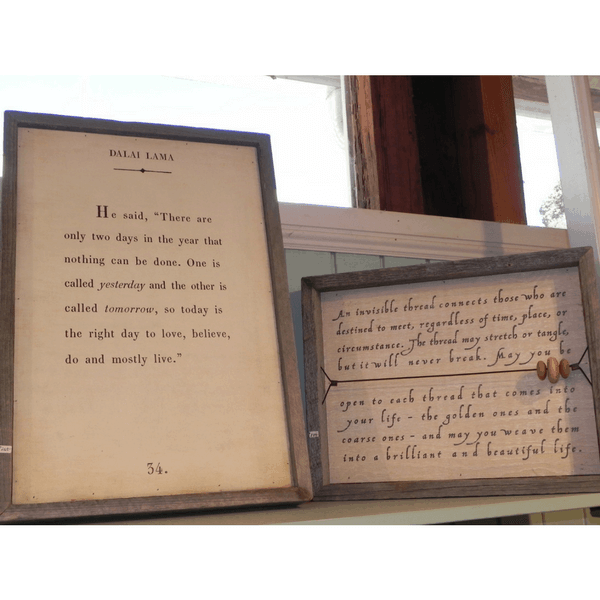 DALAI LAMA
He said, “There are
only two days in the year that
nothing can be done. One is
called yesterday and the other is
called tomorrow, so today is
the right day to love, believe,
do and mostly live.”
34.
An invisible thread connects those who are
destined to meet, regardless of time, place, or
circumstance. The thread may stretch or tangle,
but it will never break. May you be
open to each thread that comes into
your life - the golden ones and the
coarse ones - and may you weave them
into a brilliant and beautiful life.